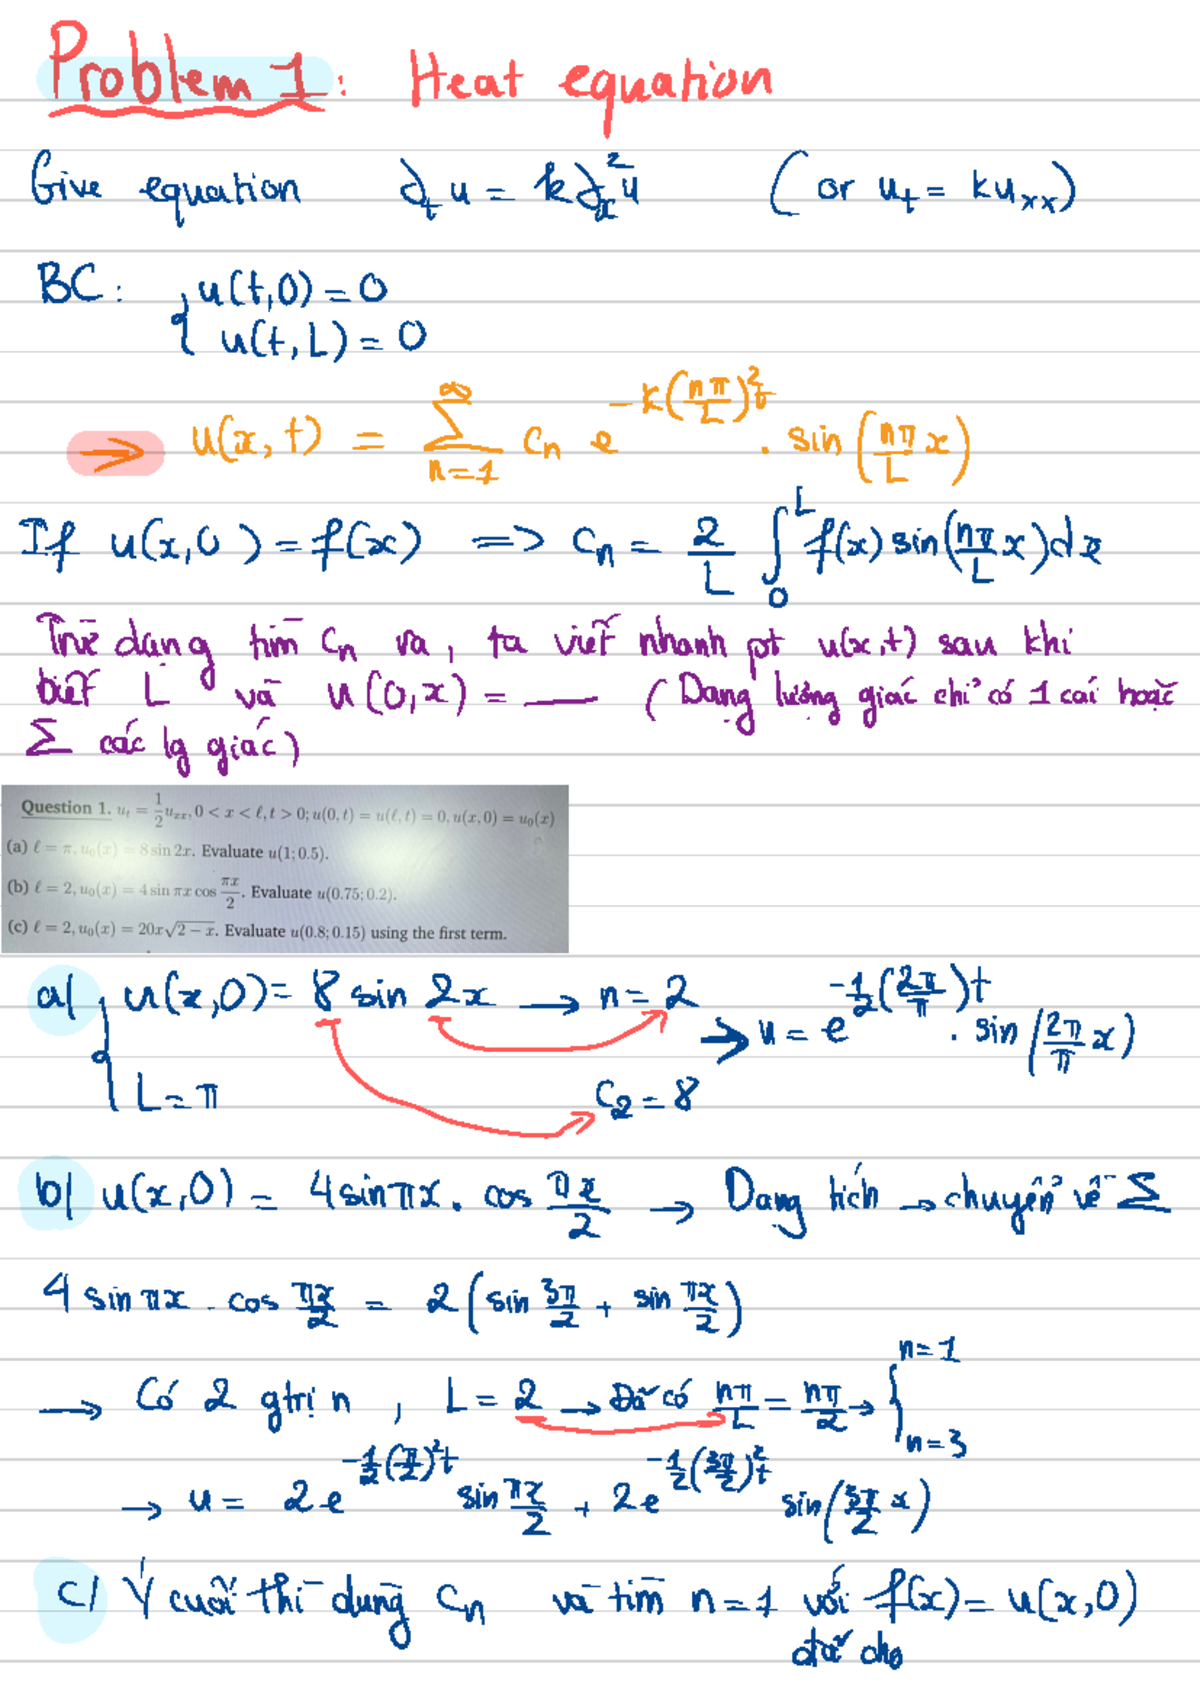 Problem 1: Heat equation
Give equation ∂ₜu = k∂ₓ²u (or uₜ = kuₓₓ)
BC: { u(t,0) = 0
u(t,L) = 0
⇒ u(x,t) = ∑_{n=1}^{∞} cₙ e^{-k(nπ/L)²t} . sin(nπ/L x)
If u(x,0) = f(x) => cₙ = 2/L ∫₀ᴸ f(x) sin(nπ/L x)dx
Trừ dạng tìm cₙ ra, ta viết nhanh pt u(x,t) sau khi
biết L và u(0,x) = __ (Dạng lượng giác chỉ có 1 cái hoặc
∑ các lg giác)
Question 1. uₜ = 1/2 uₓₓ, 0 < x < ℓ, t > 0; u(0,t) = u(ℓ,t) = 0, u(x,0) = u₀(x)
(a) ℓ = π, u₀(x) = 8 sin 2x. Evaluate u(1; 0.5).
(b) ℓ = 2, u₀(x) = 4 sin πx cos πx/2. Evaluate u(0.75; 0.2).
(c) ℓ = 2, u₀(x) = 20x√(2 − x). Evaluate u(0.8; 0.15) using the first term.
a/ { u(x,0) = 8 sin 2x → n = 2 → u = e^{-1/2(2π/π)t} . sin(2π/π x)
L = π c₂ = 8
b/ u(x,0) = 4 sin πx . cos πx/2 → Dạng tích → chuyển về ∑
4 sin πx . cos πx/2 = 2(sin 3π/2 + sin πx/2)
→ Có 2 gtrị n, L = 2 → Đã có nπ/L = nπ/2 → { n = 1
n = 3
→ u = 2e^{-1/2(π/2)²t} sin πx/2 + 2e^{-1/2(3π/2)²t} sin(3π/2 x)
c/ Ý cuối thì dùng cₙ và tìm n = 1 với f(x) = u(x,0)
đã cho